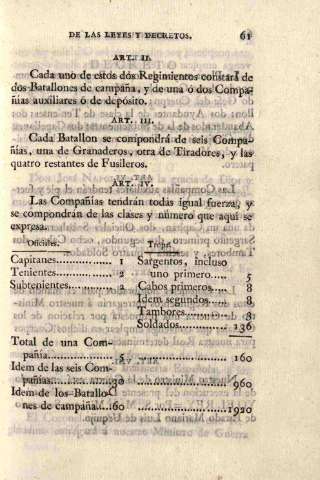 DE LAS LEYES Y DECRETOS. 61
ART. II.
Cada uno de estos dos Regimientos constará de
dos Batallones de campaña, y de una ó dos Compa-
ñias auxîliares ó de depósito.
ART. III.
Cada Batallon se compondrá de seis Compa-
ñias, una de Granaderos, otra de Tiradores, y las
quatro restantes de Fusileros.
ART. IV.
Las Compañias tendrán todas igual fuerza, y
se compondrán de las clases y número que aquí se
expresa.
Oficiales. Tropa.
Capitanes............ 1 Sargentos, incluso
Tenientes............ 2 uno primero..... 5
Subtenientes......... 2 Cabos primeros..... 8
Idem segundos..... 8
Tambores............ 3
Soldados............ 136
Total de una Com-
pañia............ 5 ............ 160
Idem de las seis Com-
pañias............ 30 ............ 960
Idem de los Batallo-
nes de campaña....60 ............ 1920